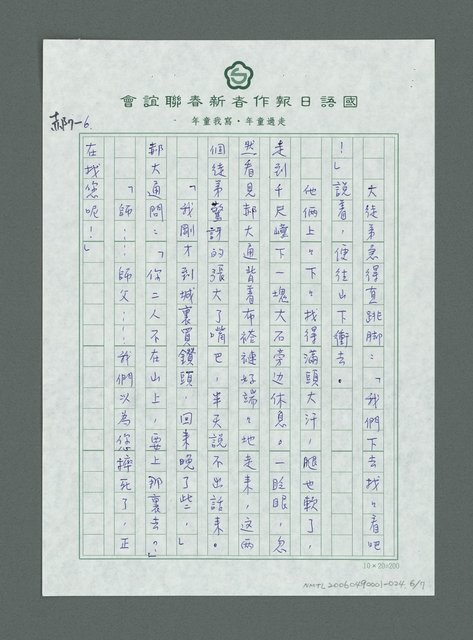 國語日報作者新春聯誼會
走過童年・寫我童年
郝7-6.
大徒弟急得直跳脚：「我們下去找々看吧
！」說着，便往山下衝去。
他倆上々下々找得滿頭大汗，腿也軟了，
走到千尺㠉下一塊大石旁边休息。一眨眼，忽
然看見郝大通背着布褡褳好端々地走來，这兩
個徒弟驚訝的張大了嘴巴，半天說不出話來。
「我剛才到城裏買鑽頭，回来晚了些，」
郝大通問：「你二人不在山上，要上那裏去？」
「師……師父……我們以為您摔死了，正
在找您呢！」
10×20=200
NMTL20060490001-024 6/7